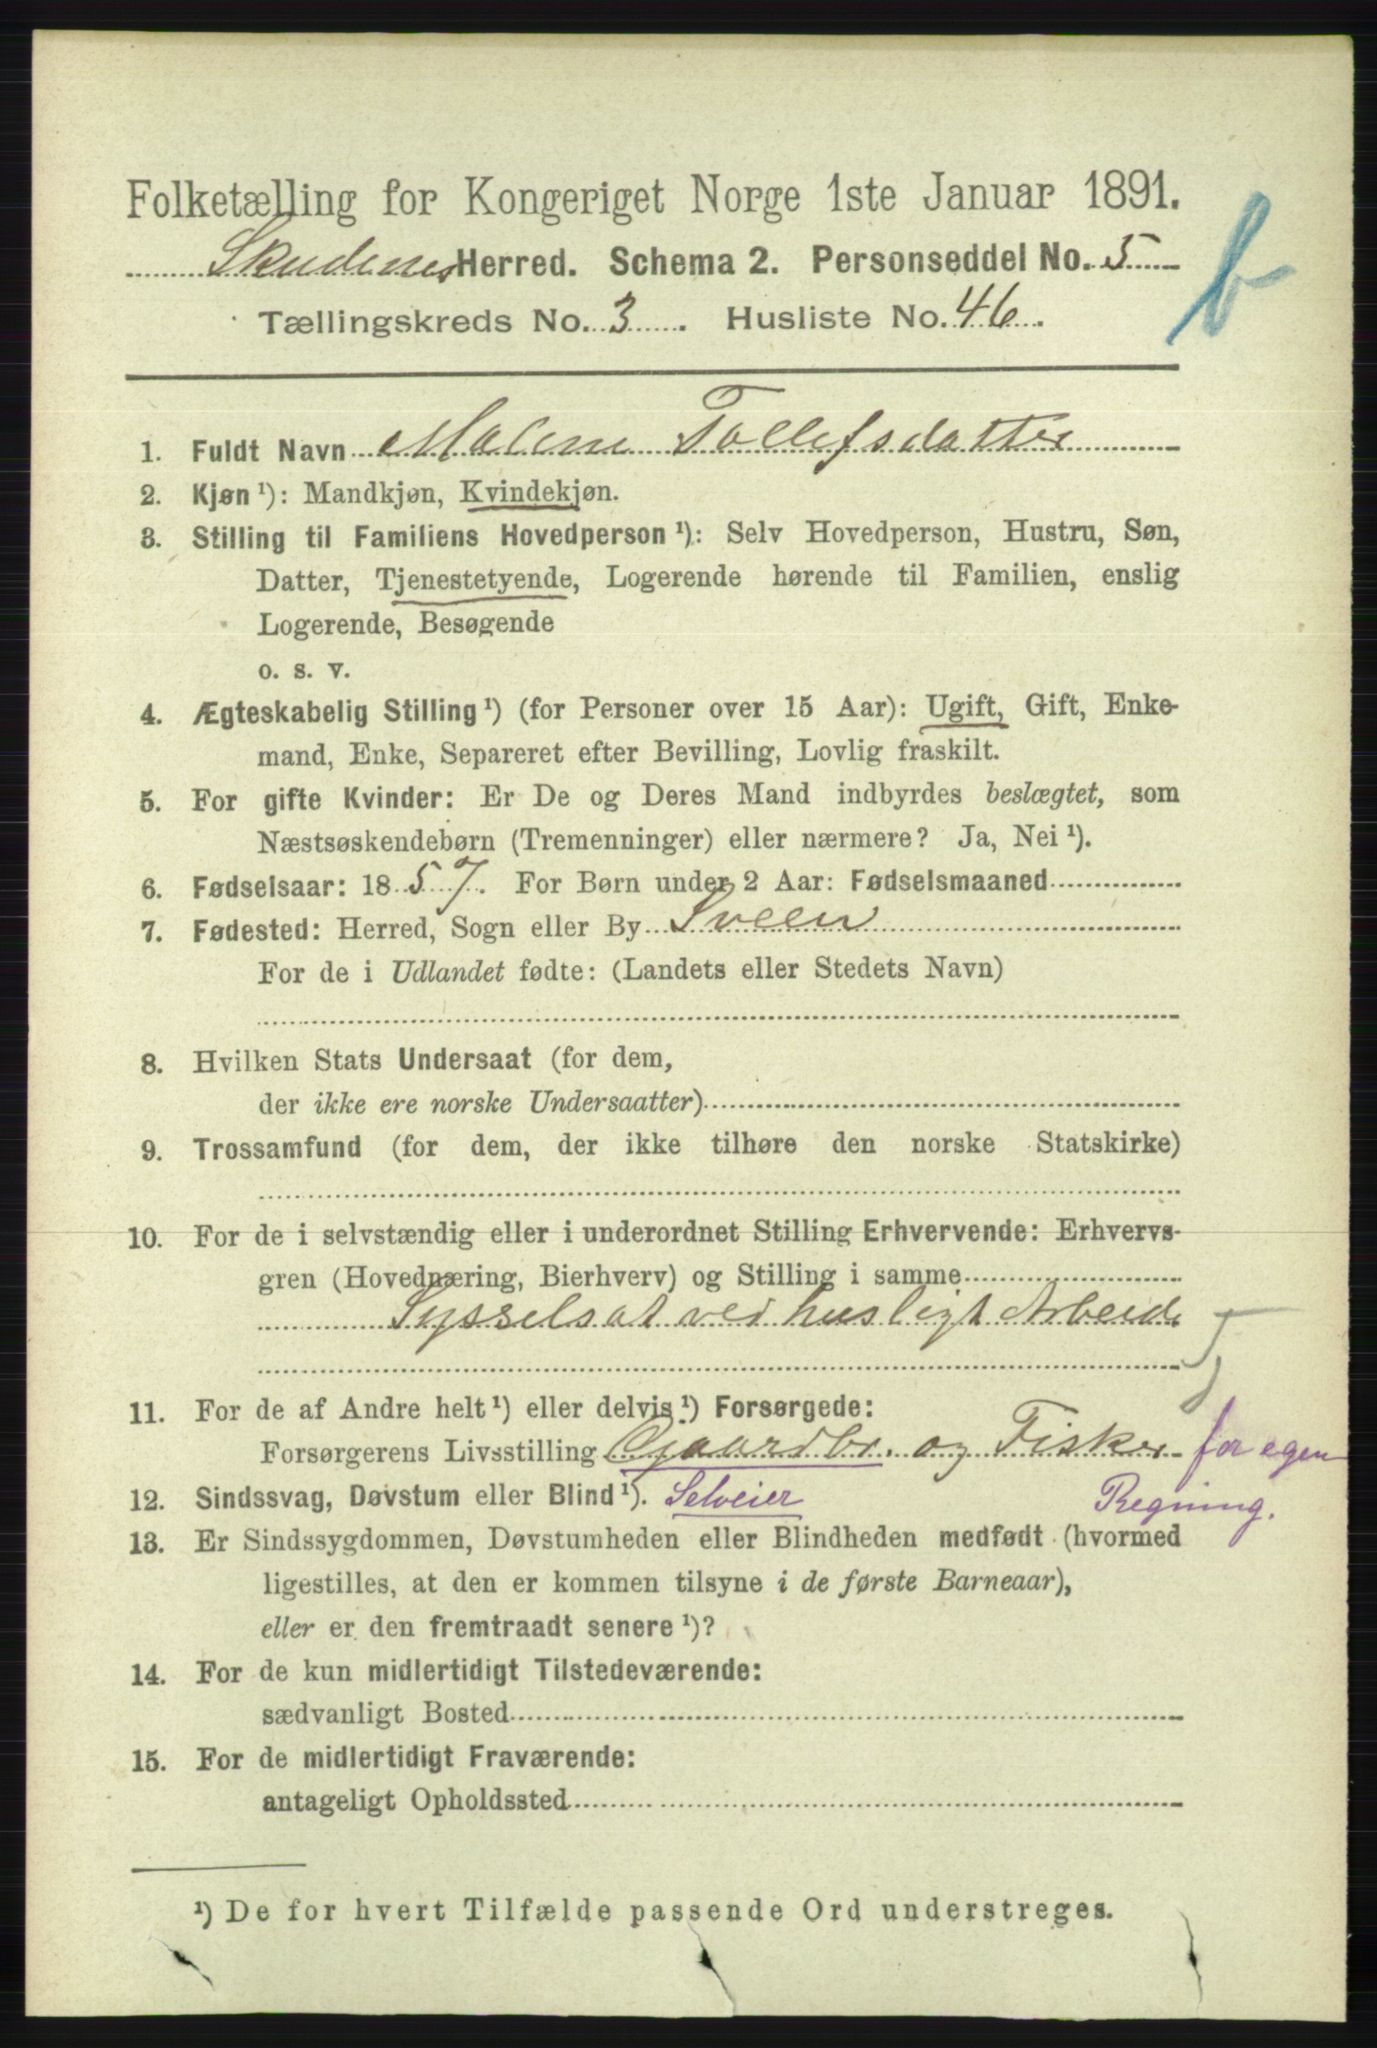 Folketælling for Kongeriget Norge 1ste Januar 1891.
b
Skudenes Herred. Schema 2. Personseddel No. 5
Tællingskreds No. 3. Husliste No. 46.
1. Fuldt Navn Malene Tollefsdatter
2. Kjøn ¹): Mandkjøn, Kvindekjøn.
3. Stilling til Familiens Hovedperson ¹): Selv Hovedperson, Hustru, Søn,
Datter, Tjenestetyende, Logerende hørende til Familien, enslig
Logerende, Besøgende
o. s. v.
4. Ægteskabelig Stilling ¹) (for Personer over 15 Aar): Ugift, Gift, Enke-
mand, Enke, Separeret efter Bevilling, Lovlig fraskilt.
5. For gifte Kvinder: Er De og Deres Mand indbyrdes beslægtet, som
Næstsøskendebørn (Tremenninger) eller nærmere? Ja, Nei ¹).
6. Fødselsaar: 1857. For Børn under 2 Aar: Fødselsmaaned
7. Fødested: Herred, Sogn eller By Sveen
For de i Udlandet fødte: (Landets eller Stedets Navn)
8. Hvilken Stats Undersaat (for dem,
der ikke ere norske Undersaatter)
9. Trossamfund (for dem, der ikke tilhøre den norske Statskirke)
10. For de i selvstændig eller i underordnet Stilling Erhvervende: Erhvervs-
gren (Hovednæring, Bierhverv) og Stilling i samme
Sysselsat ved husligt Arbeide
11. For de af Andre helt ¹) eller delvis ¹) Forsørgede:
Forsørgerens Livsstilling Gaardbr. og Fisker for egen
12. Sindssvag, Døvstum eller Blind ¹). Selveier Regning.
13. Er Sindssygdommen, Døvstumheden eller Blindheden medfødt (hvormed
ligestilles, at den er kommen tilsyne i de første Barneaar),
eller er den fremtraadt senere ¹)?
14. For de kun midlertidigt Tilstedeværende:
sædvanligt Bosted
15. For de midlertidigt Fraværende:
antageligt Opholdssted
¹) De for hvert Tilfælde passende Ord understreges.